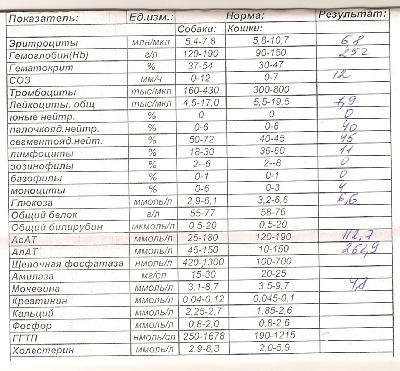 Показатель: Ед.изм.: Норма: Результат:
Собаки: Кошки:
Эритроциты млн/мкл 5,4-7,8 5,8-10,7 6,8
Гемоглобин(Hb) г/л 120-190 90-150 252
Гематокрит % 37-54 30-47
СОЭ мм/ч 0-12 0-7 12
Тромбоциты тыс/мкл 160-430 300-800
Лейкоциты, общ тыс/мкл 4,5-17,0 5,5-19,5
юные нейтр. % 0 0 0
палочкояд.нейтр. % 0-6 0-6 40
сегментояд.нейт. % 50-72 40-45 45
лимфоциты % 18-30 36-60 11
эозинофилы % 2--6 2--8 0
базофилы % 0-1 0-1 0
моноциты % 0-6 0-3 4
Глюкоза ммоль/л 2,9-6,1 3,2-6,6 6,6
Общий белок г/л 55-77 58-76
Общий билирубин мкмоль/л 0,5-20 0,5-20
АсАТ ммоль/л 25-180 120-190 112,7
АлАТ ммоль/л 45-150 10-150 262,9
Щелочная фосфатаза нмоль/л 420-1300 100-700
Амилаза мг/сл 15-30 20-25
Мочевина ммоль/л 3,1-8,7 3,5-9,7 4,8
Креатинин ммоль/л 0,04-0,12 0,045-0,1
Кальций ммоль/л 2,25-2,7 1,85-2,6
Фосфор ммоль/л 0,8-2,0 0,8-2,6
ГГТП нмоль/сл 250-1678 190-1215
Холестерин ммоль/л 2,9-8,3 2,0-5,9